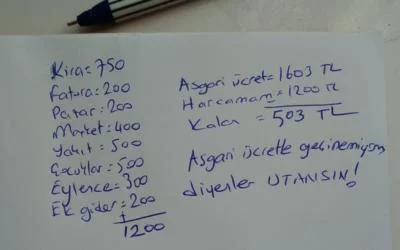 Kira=750
fatura=200
Pazar=200
Market=400
Yakıt=500
Çocuklar=500
Eğlence=300
Ek gider=200
+
1200
Asgari ücret=1603 TL
Harcamam=1200 TL
Kalan = 503 TL
Asgari ücretle geçinemiyom
diyenler UTANSIN!